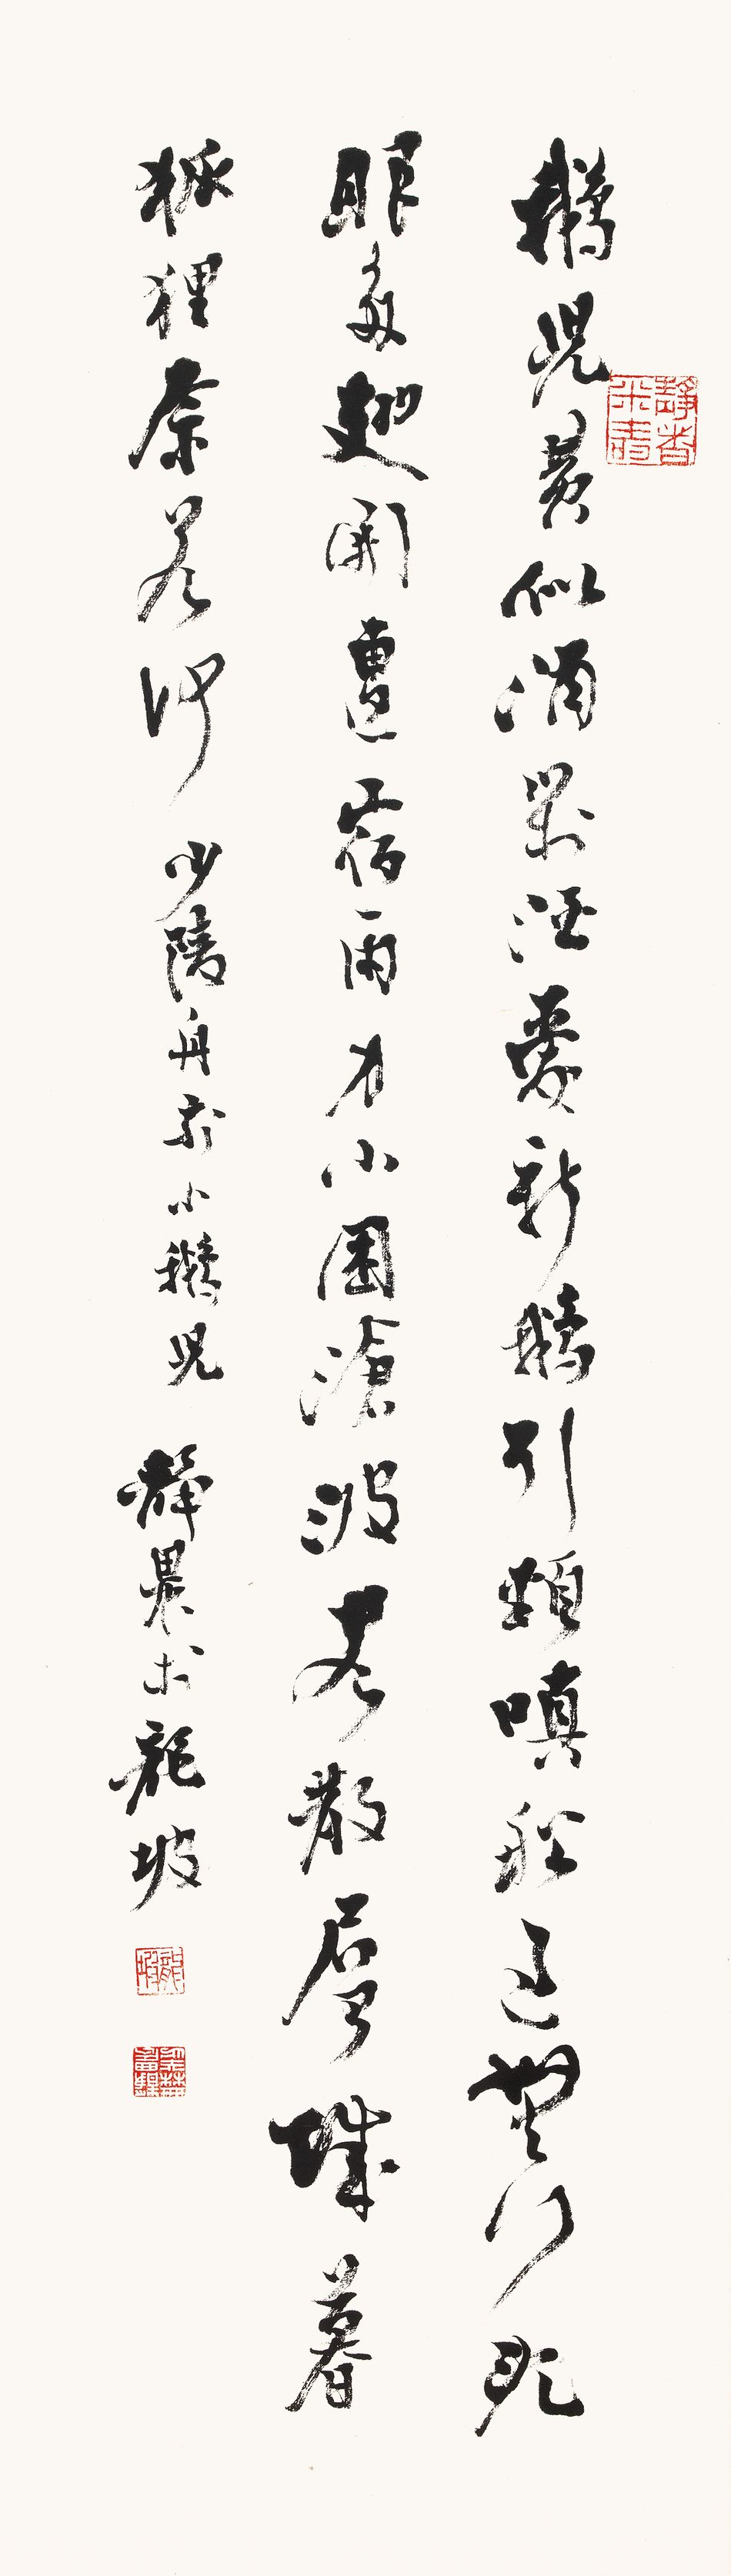 鵝兒黃似酒對酒愛新鵝引頸嗔船逼無行亂
眼多翅開遭宿雨力小困滄波客散層城暮
狐狸奈若何 少陵舟前小鵝兒 靜農於龍坡
龍坡